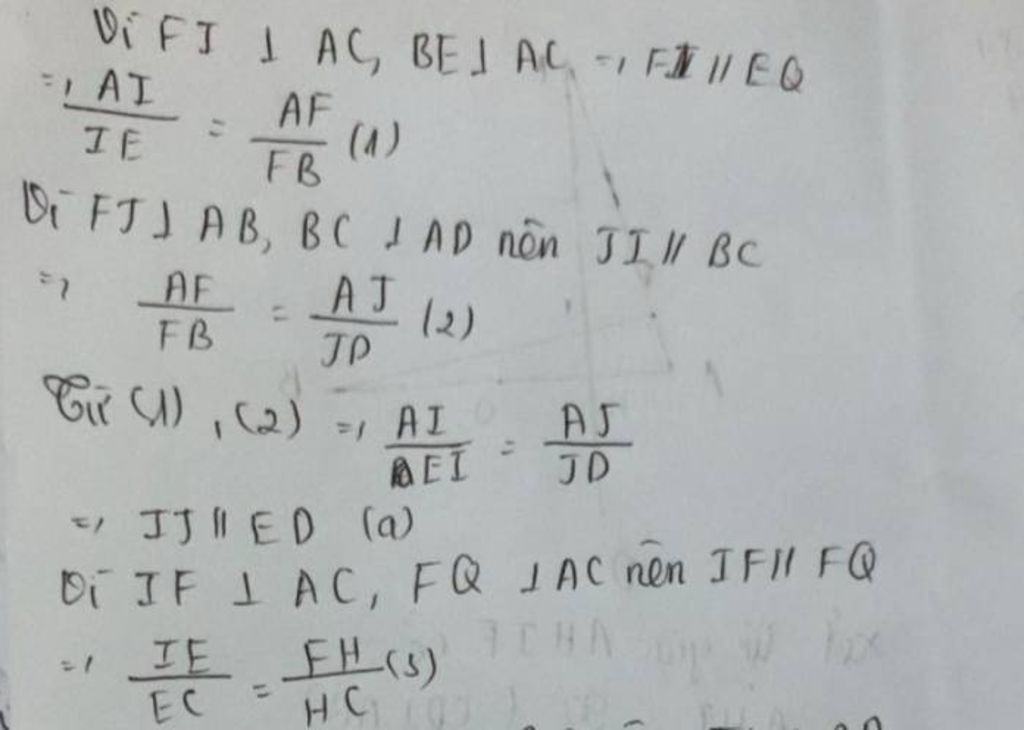 Vì FI ⊥ AC, BE ⊥ AC => FI // EQ
=> AI/IE = AF/FB (1)
Vì FJ ⊥ AB, BC ⊥ AD nên JI // BC
=> AF/FB = AJ/JD (2)
Từ (1), (2) => AI/EI = AJ/JD
=> IJ // ED (a)
Vì IF ⊥ AC, FQ ⊥ AC nên IF // FQ
=> IE/EC = FH/HC (3)